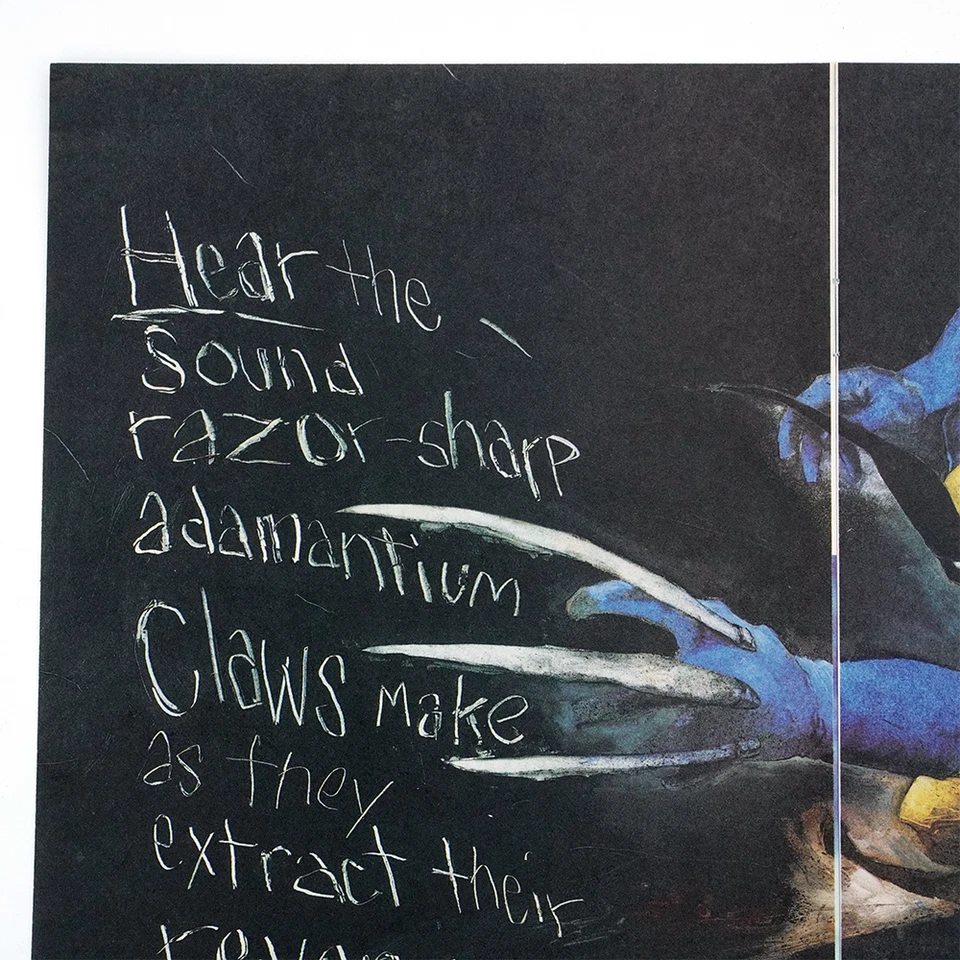 Hear the
Sound
razor-sharp
adamantium
Claws make
as they
extract their